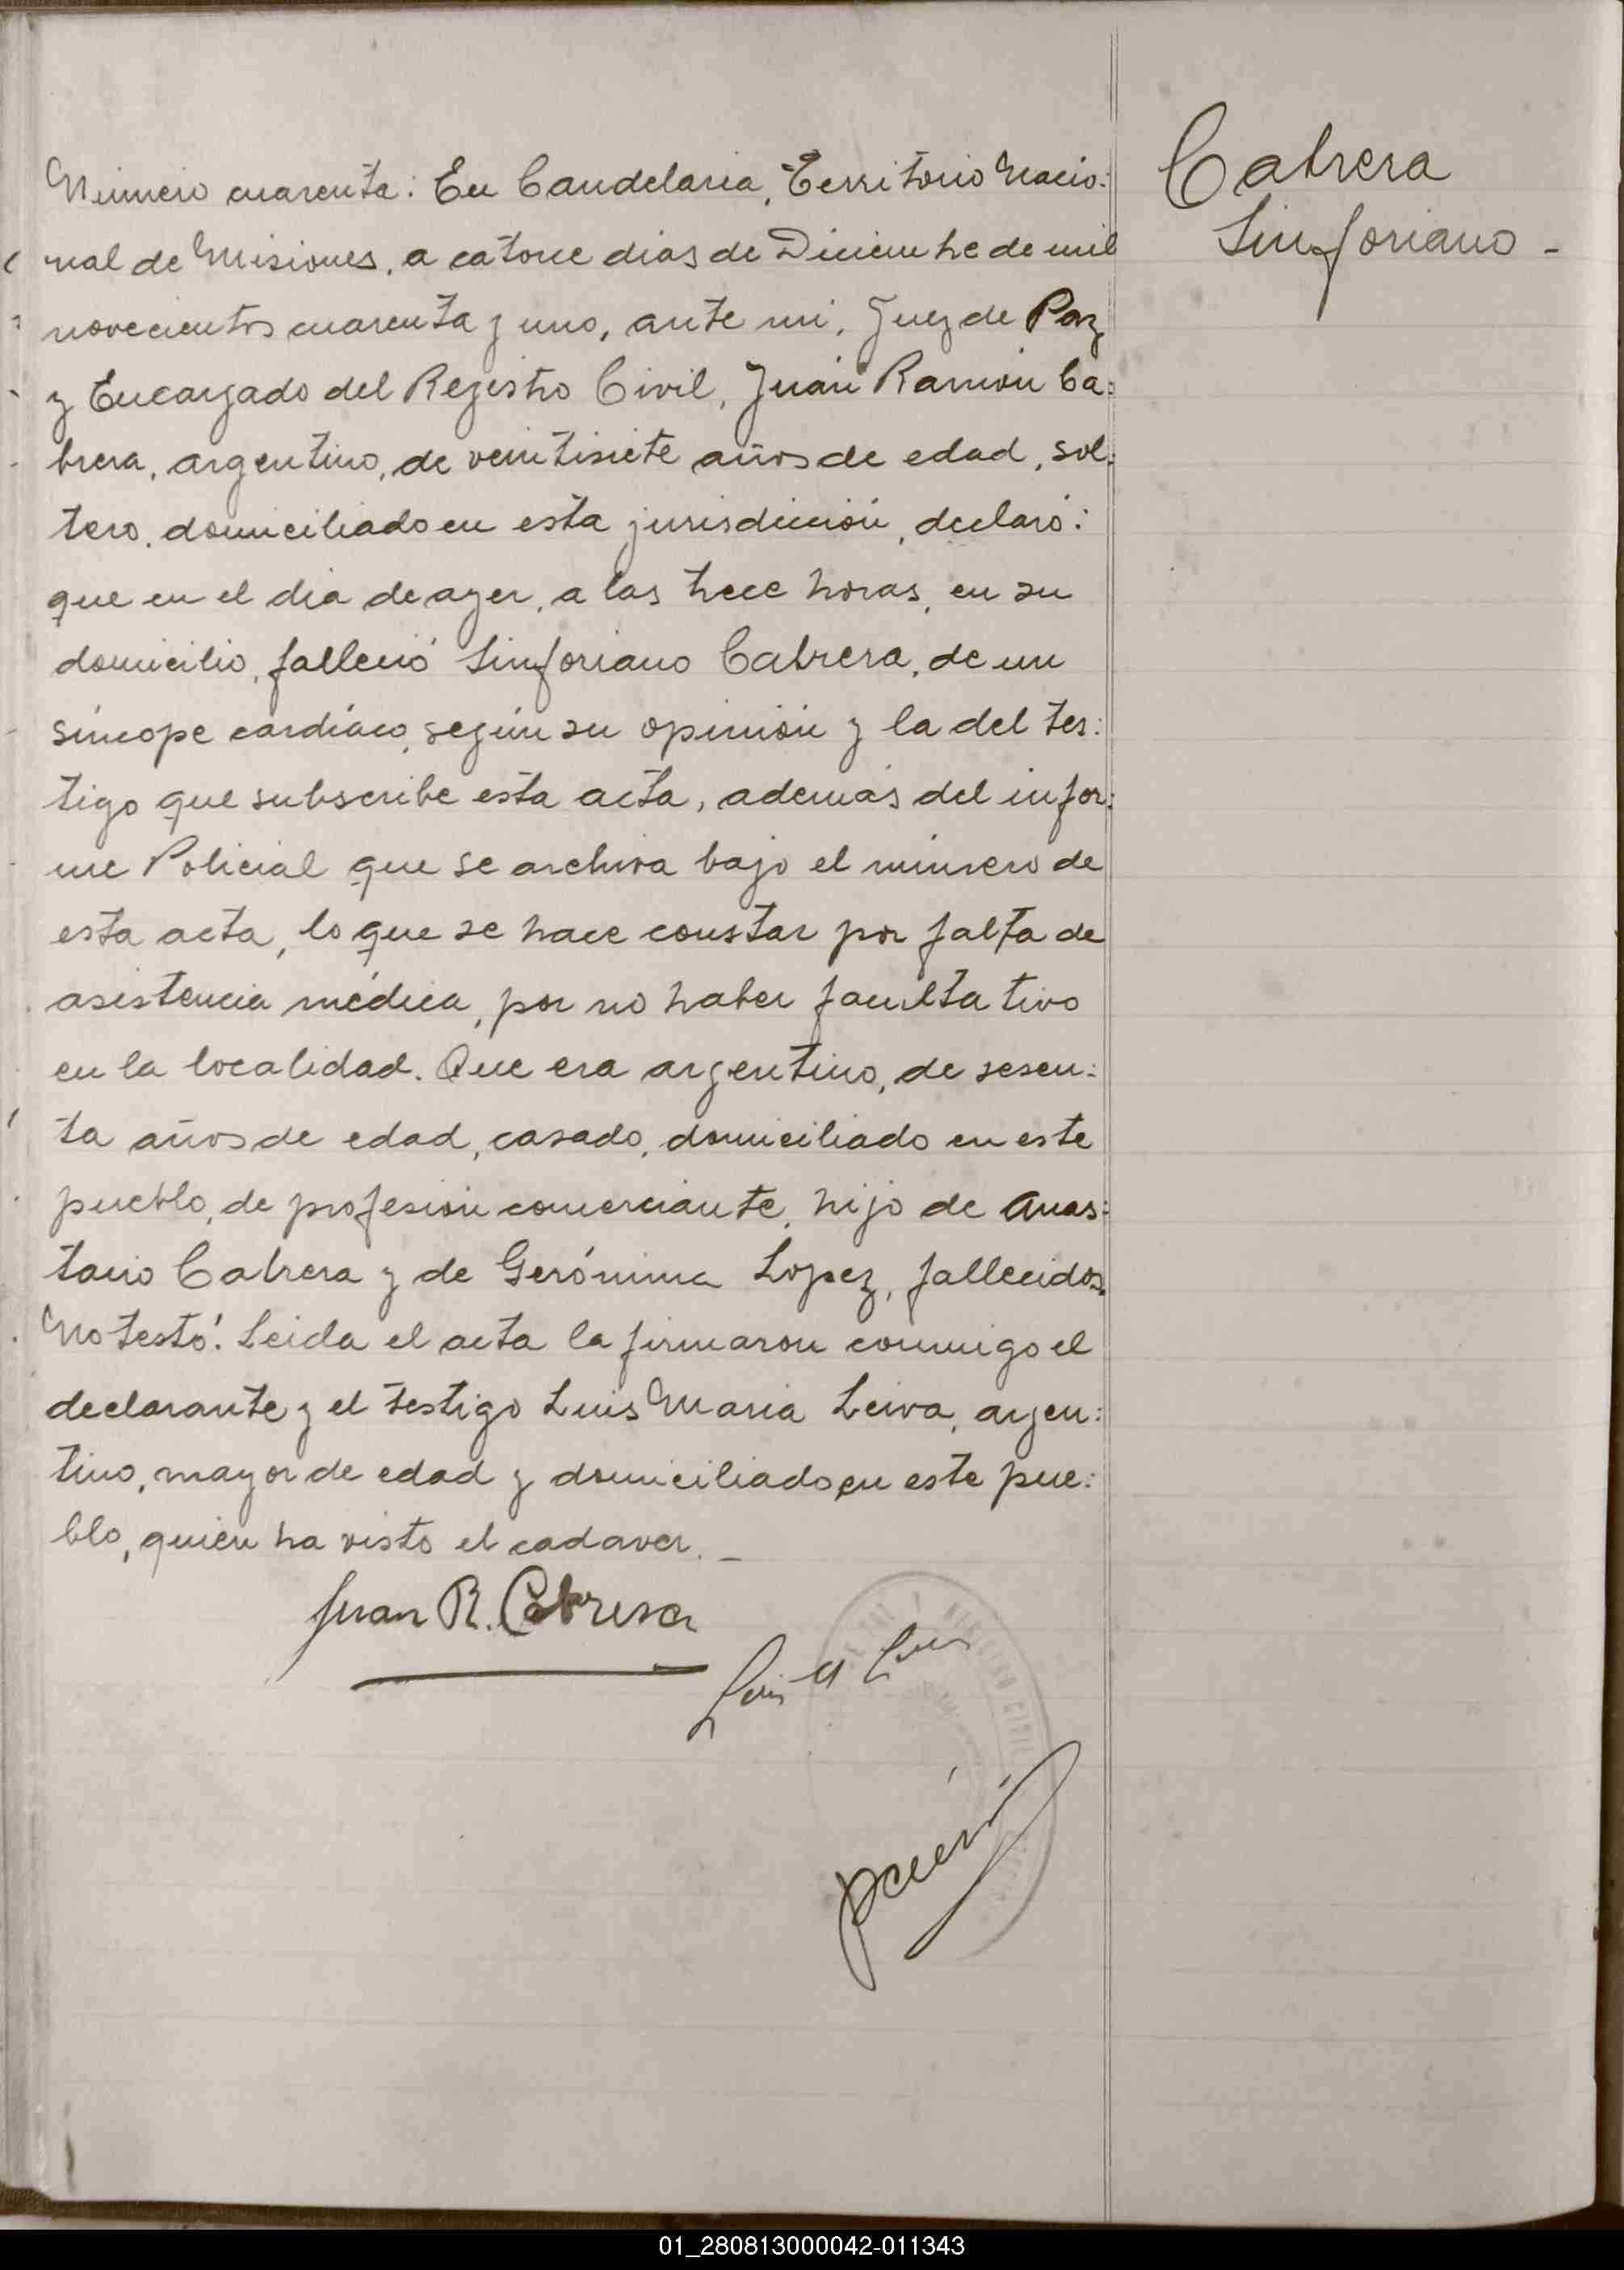 Número cuarenta: En Candelaria, Territorio Nacio:
nal de Misiones, a catorce dias de Diciembre de mil
novecientos cuarenta y uno, ante mi, Juez de Paz
y Encargado del Registro Civil, Juan Ramón Ca:
brera, argentino, de veintisiete años de edad, sol:
tero, domiciliado en esta jurisdicción, declaró:
que en el dia de ayer, a las trece horas, en su
domicilio, falleció Sinforiano Cabrera, de un
síncope cardíaco, según su opinión y la del tes:
tigo que subscribe esta acta, además del infor:
me Policial que se archiva bajo el número de
esta acta, lo que se hace constar por falta de
asistencia médica, por no haber facultativo
en la localidad. Que era argentino, de sesen:
ta años de edad, casado, domiciliado en este
pueblo, de profesión comerciante, hijo de Anas:
tacio Cabrera y de Gerónima Lopez, fallecidos.
No testó. Leida el acta la firmaron conmigo el
declarante y el testigo Luis Maria Leiva, argen:
tino, mayor de edad y domiciliado en este pue:
blo, quien ha visto el cadaver. _
Juan R. Cabrera
Luis M
REGISTRO CIVIL
Cabrera
Sinforiano -
01_280813000042-011343